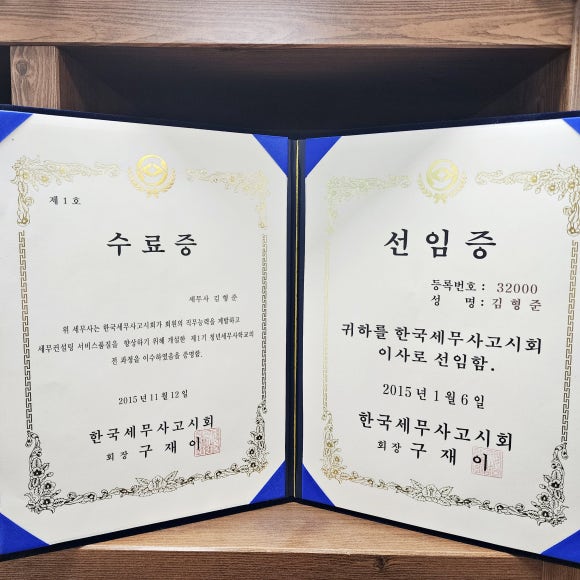 제 1 호
수료증
세무사 김형준
위 세무사는 한국세무사고시회가 회원의 직무능력을 계발하고
세무컨설팅 서비스품질을 향상하기 위해 개설한 제1기 청년세무사학교의
전 과정을 이수하였음을 증명함.
2015 년 11 월 12 일
한국세무사고시회
회장 구재이
선임증
등록번호 : 32000
성 명 : 김형준
귀하를 한국세무사고시회
이사로 선임함.
2015 년 1 월 6 일
한국세무사고시회
회장 구재이